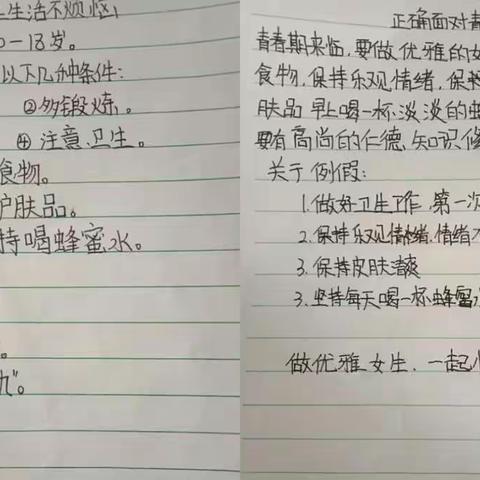 生活不烦恼
0-18岁。
以下几种条件:
②多锻炼。
④注意卫生。
食物。
护肤品。
持喝蜂蜜水。
。
九"。
正确面对青
青春期来临,要做优雅的女
食物,保持乐观情绪,保持
肤品 早上喝一杯淡淡的蜂
要有高尚的仁德、知识修
关于例假:
1.做好卫生工作,第一次
2.保持乐观情绪,情绪不
3.保持皮肤清爽
3.坚持每天喝一杯蜂蜜水
做优雅女生,一起